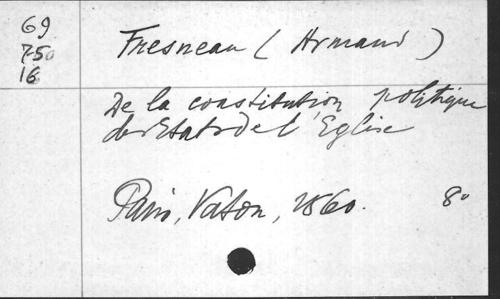 69
750
16
Fresneau (Armand)
De la constitution politique
des Etats de l'Eglise
Paris, Vaton, 1860. 8°